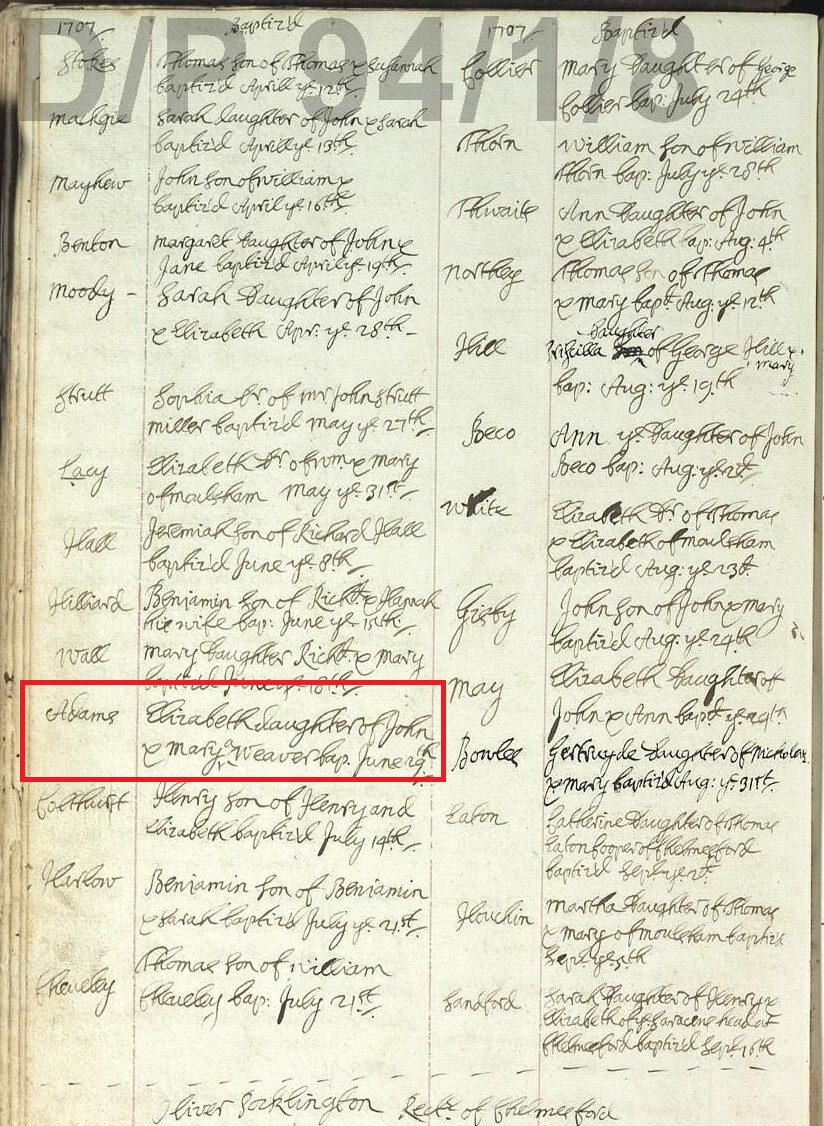 D/P 94/1/8
1707 Baptiz'd
Stokes Thomas Son of Thomas & Susannah
baptiz'd Aprill ye 12th
Mackgie Sarah daughter of John & Sarah
baptiz'd Aprill ye 13th
Mayhew John Son of William &
baptiz'd April ye 16th
Benton Margaret Daughter of John &
Jane baptiz'd April ye 19th
Moody - Sarah Daughter of John
& Elizabeth Apr: ye 28th
Strutt Sophia Dr of Mr John Strutt
Miller baptiz'd May ye 27th
Lacy Elizabeth Dr of & Mary
of Moulsham May ye 31st
Hall Jeremiah Son of Richard Hall
baptiz'd June ye 8th
Hilliard Benjamin Son of Richd & Hannah
his wife bap: June ye 15th
Wall Mary Daughter Richd & Mary
baptiz'd June ye 18th
Adams Elizabeth daughter of John
& Mary ye Weaver bap. June 29th
Colthurst Henry Son of Henry and
Elizabeth baptiz'd July 14th
Harlow Benjamin Son of Benjamin
& Sarah baptiz'd July ye 21st
Cheveley Thomas Son of William
Cheveley bap: July 21st
1707 Baptiz'd
Collier Mary Daughter of George
Collier bap: July 24th
Thorn William Son of William
Thorn bap: July ye 28th
Thwaits Ann Daughter of John
& Elizabeth bap: Aug: 4th
Northey Thomas Son of Thomas
& Mary bapt Aug: ye 12th
Daughter
Hill Priscilla of George Hill &
Mary
bap: Aug: ye 19th
Beco Ann ye Daughter of John
Beco bap: Aug: ye
White Elizabeth Dr of Thomas
& Elizabeth of Moulsham
baptiz'd Aug: ye 23d
Gisby John Son of John & Mary
baptiz'd Aug: ye 24th
May Elizabeth Daughter of
John & Ann bapd ye 29th
Bowles Gertruyde Daughter of Nicholas
& Mary baptiz'd Aug: ye 31st
Eaton Catherine Daughter of Thomas
Eaton Cooper of Chelmesford
baptiz'd Sept ye 2d
Houchin Martha Daughter of Thomas
& Mary of Moulsham baptiz'd
Sept ye 5th
Sandford Sarah Daughter of Henry &
Elizabeth of ye Saracens head at
Chelmesford baptiz'd Sept 16th
Oliver Pocklington Rectr of Chelmesford